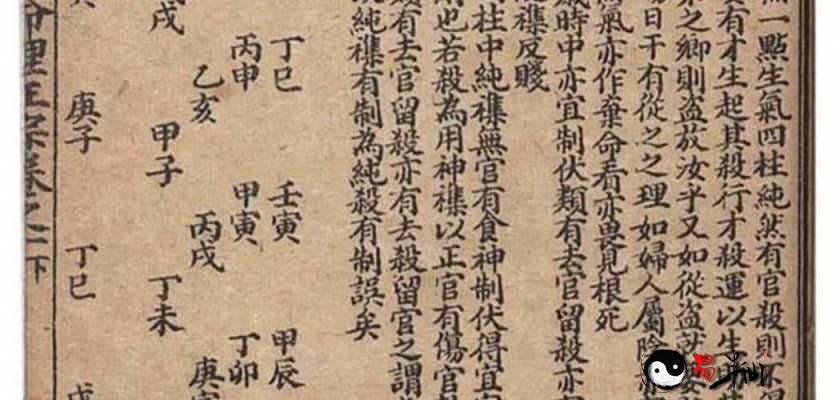 一點生氣四柱純然有官殺則不得
有才生起其殺行才殺運以生
之鄉則盜放汝乎又如從盜
日干有從之之理如婦人屬陰
氣亦作棄命看亦畏見根死
歲時中亦宜制伏類有去官留殺亦有
襍反賤
柱中純襍無官有食神制伏得宜
也若殺為用神襍以正官有傷官
類有去官留殺亦有去殺留官之謂
純襍有制為純殺有制誤矣
丁巳 壬寅 甲辰
丙申 甲寅 丁卯
乙亥 丙戌 庚寅
戌 甲子 丁未
庚子 丁巳 戊
命理正宗卷之二下